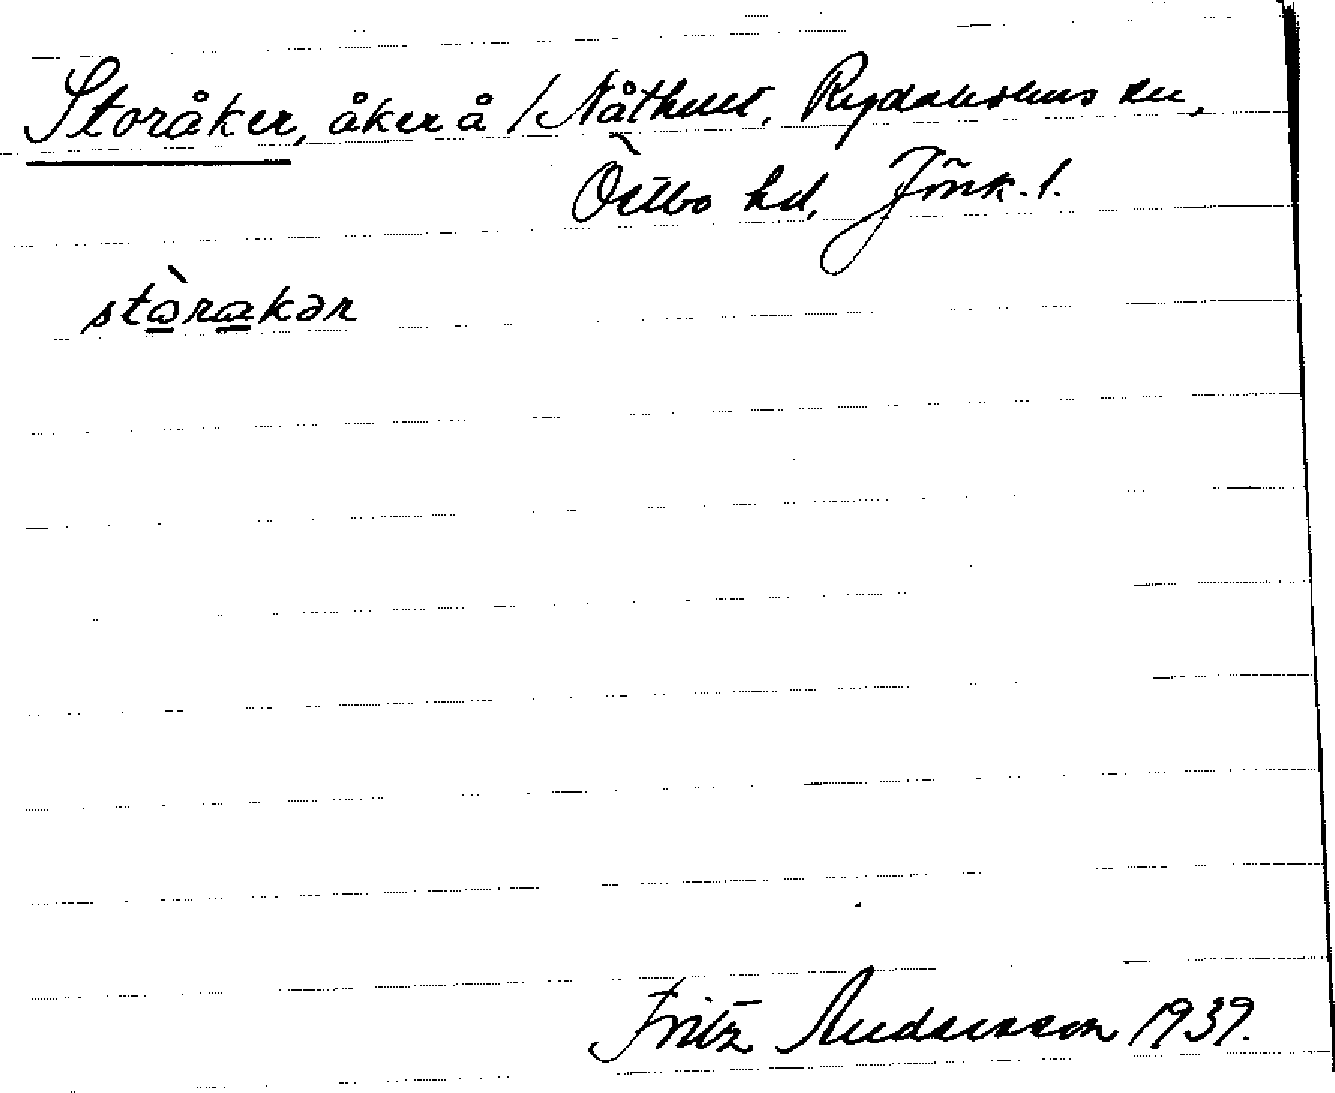 Storåker, åker å /Nåthult, Rydaholms sn,
Östbo hd, Jönk. l.
stòrakər
Fritz Andersson 1939.